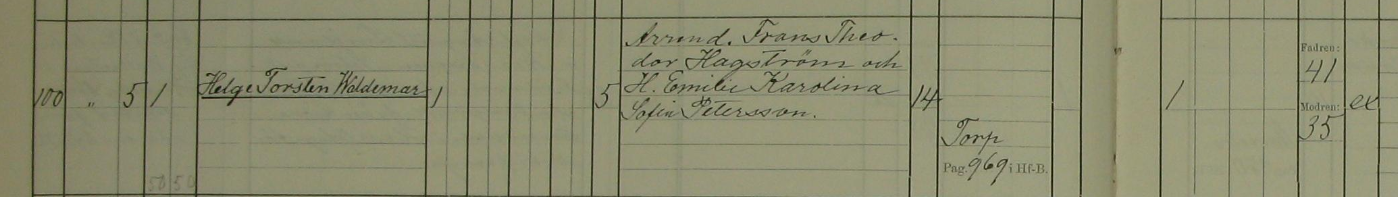 100 " 5 1 Helge Torsten Waldemar 1 5 Arrend. Frans Theo-
dor Hagström och
H. Emilie Karolina
Sofia Petersson.
14
Torp
Pag. 969 i Hf-B.
1
Fadren:
41
Modren:
35
ex
50 50